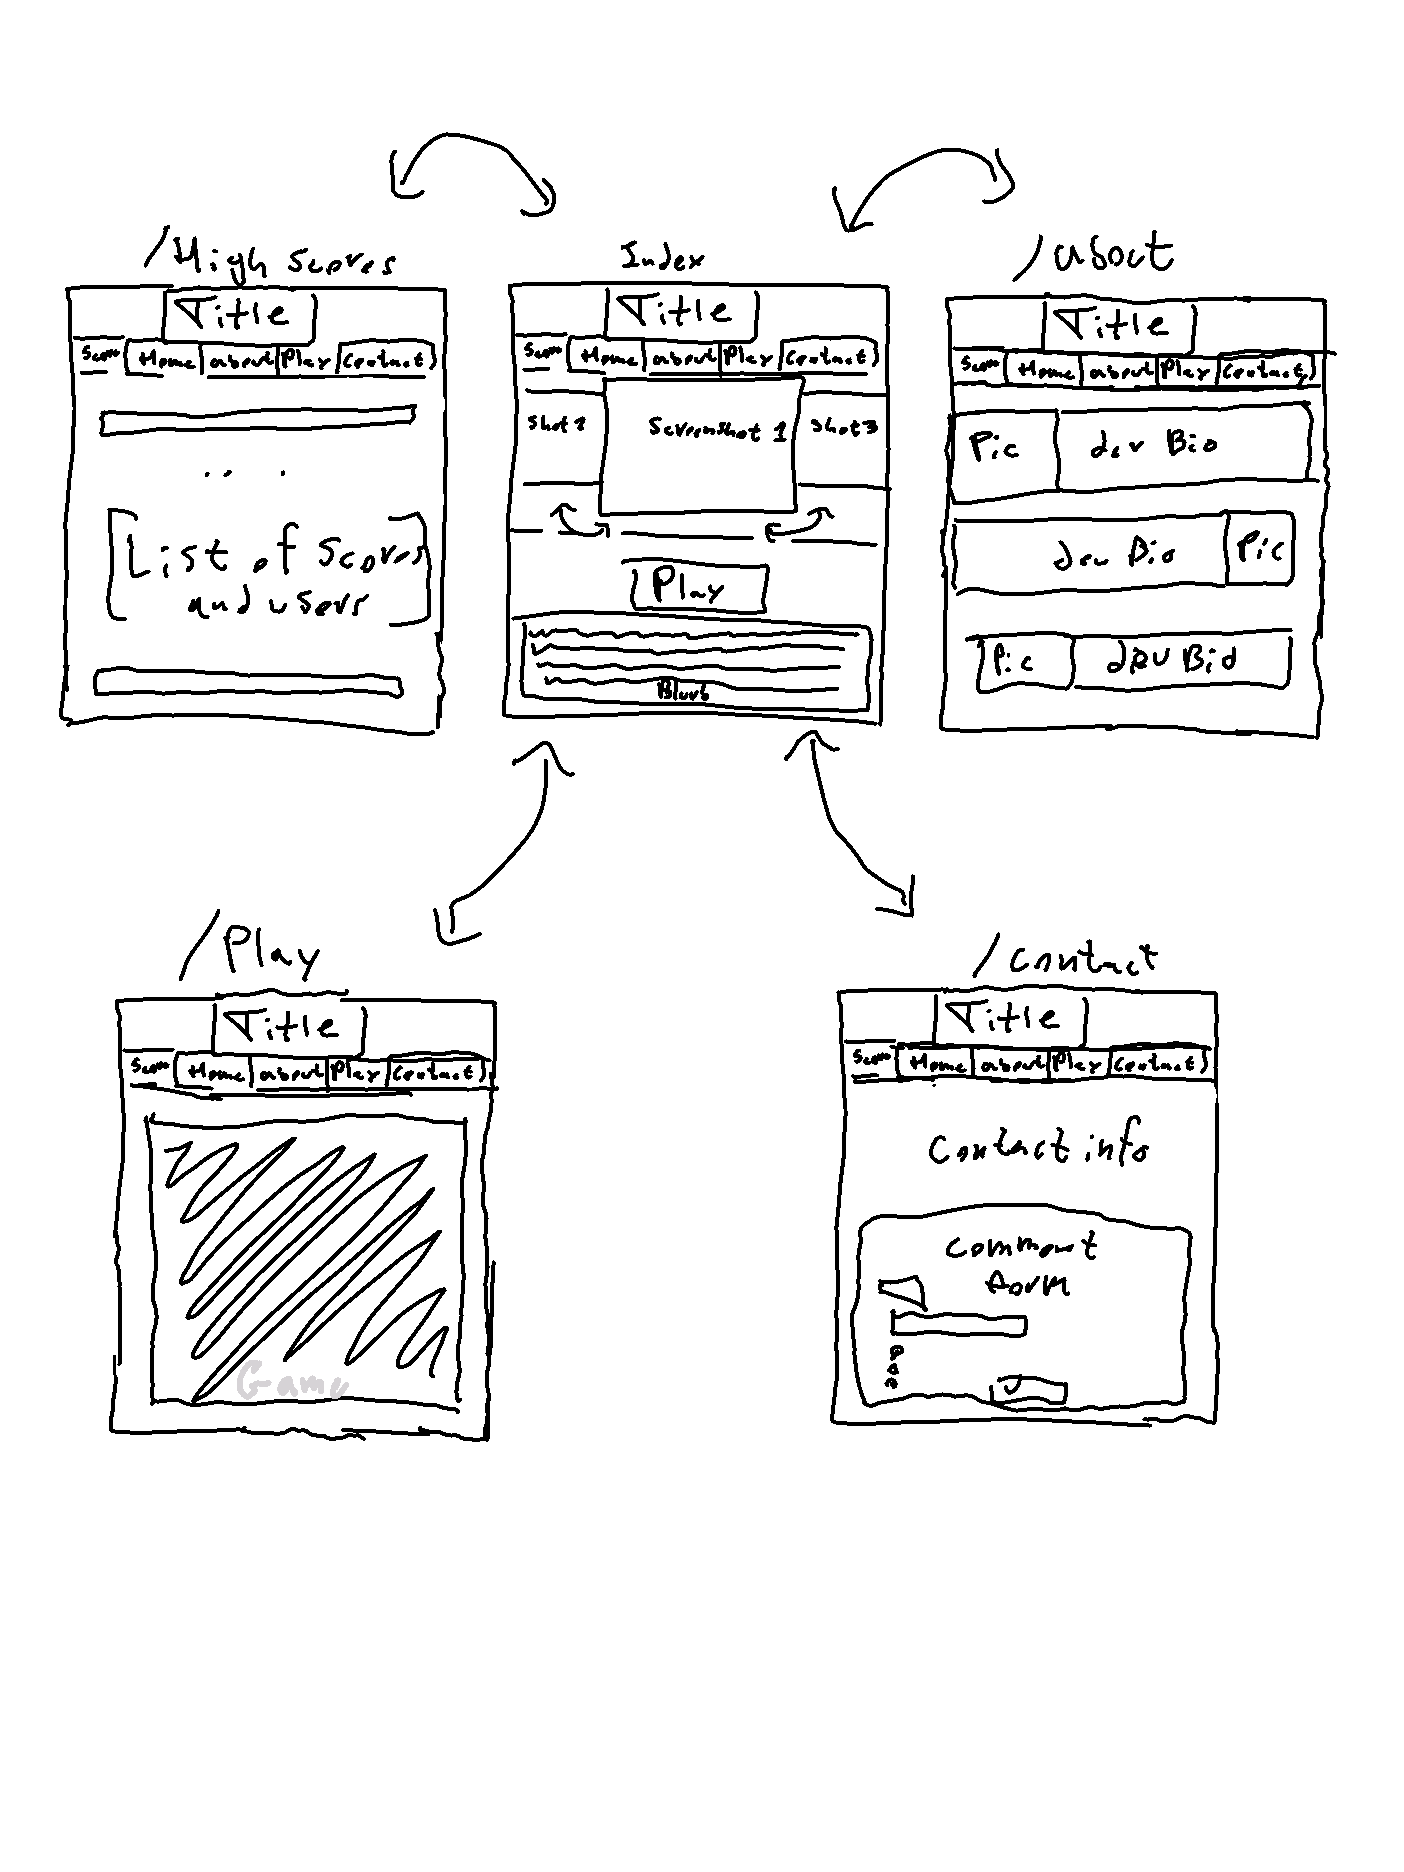 /High Scores
Title
Scores Home about Play Contact
. . .
[List of Scores
and users]
Index
Title
Scores Home about Play Contact
Shot 2 Screenshot 1 Shot 3
Play
Blurb
/about
Title
Scores Home about Play Contact
Pic dev Bio
dev Bio Pic
Pic dev Bio
/Play
Title
Scores Home about Play Contact
Game
/Contact
Title
Scores Home about Play Contact
Contact info
Comment
form